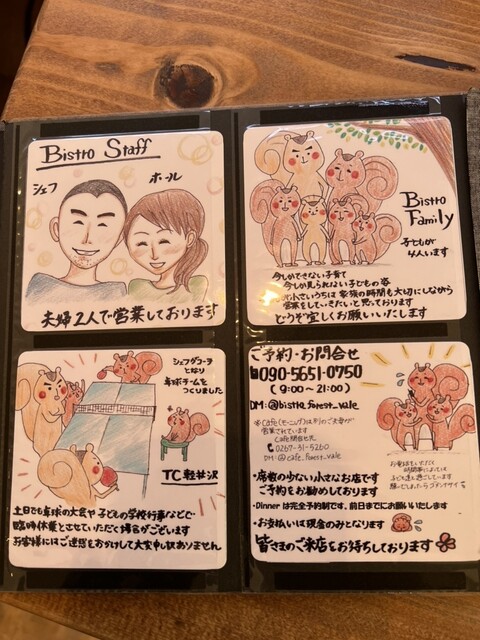 Bistro Staff
シェフ
ホール
夫婦2人で営業しております
Bistro
Family
子どもが
4人います
今しかできない子育て
今しか見られない子どもの姿
小さいうちは 家族の時間も大切にしながら
営業をしていきたいと思っております
どうぞ宜しくお願いいたします
シェフがコーチ
となり
卓球チームを
つくりました
TC軽井沢
土日でも卓球の大会や子どもの学校行事などで
臨時休業とさせていただく場合がございます
お客様にはご迷惑をおかけして大変申し訳ありません
ご予約・お問合せ
090-5651-0750
(9:00~21:00)
DM:@bistro_forest_vale
営業されています
Cafe問合せ先
0267-31-5260
DM:@cafe_forest_vale
・席数の少ない小さなお店です
ご予約をお勧めしております
・Dinnerは完全予約制です、前日までにお願いいたします
・お支払いは現金のみとなります
皆さまのご来店をお待ちしております